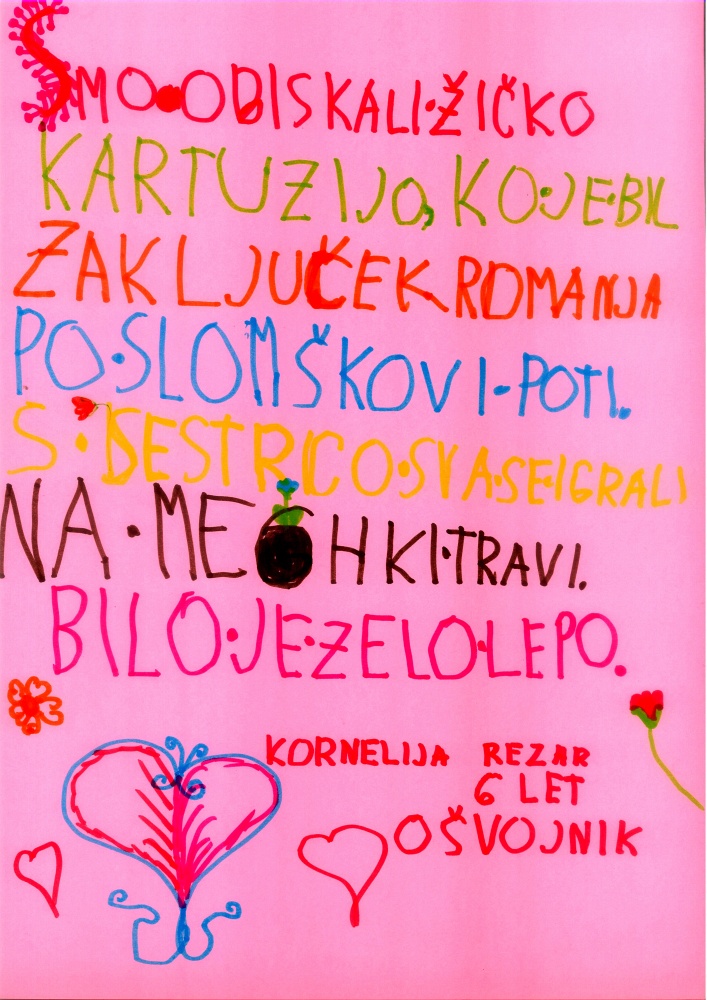 SMO•OBISKALI•ŽIČKO
KARTUZIJO, KO•JE•BIL
ZAKLJUČEK ROMANJA
PO•SLOMŠKOVI•POTI.
S•SESTRICO•SVA•SE•IGRALI
NA•MEHKI•TRAVI.
BILO•JE•ZELO•LEPO.
KORNELIJA REZAR
6 LET
OŠ VOJNIK